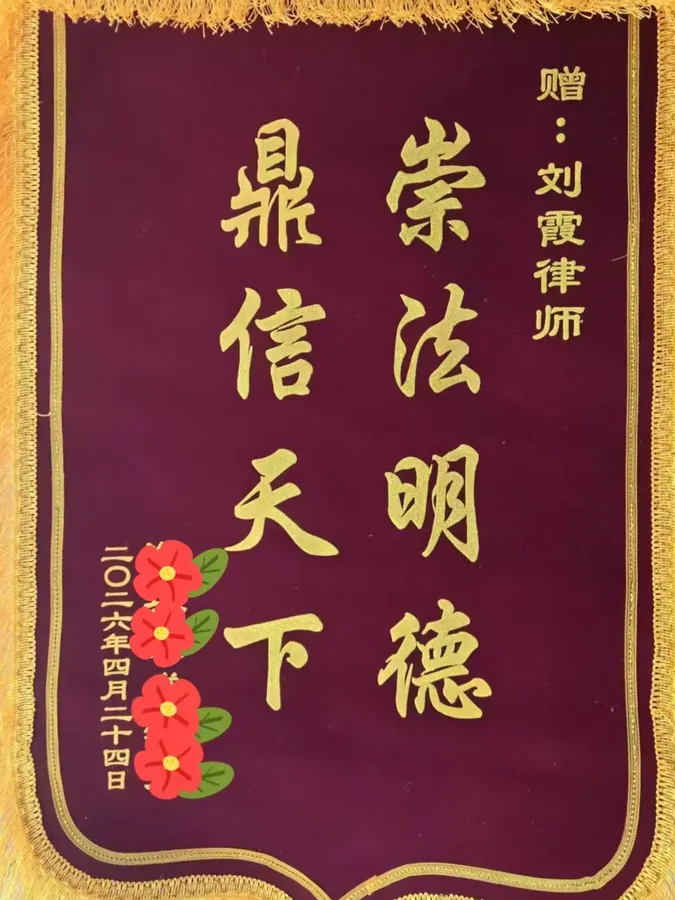 赠：刘霞律师
崇法明德
鼎信天下
二〇二六年四月二十四日